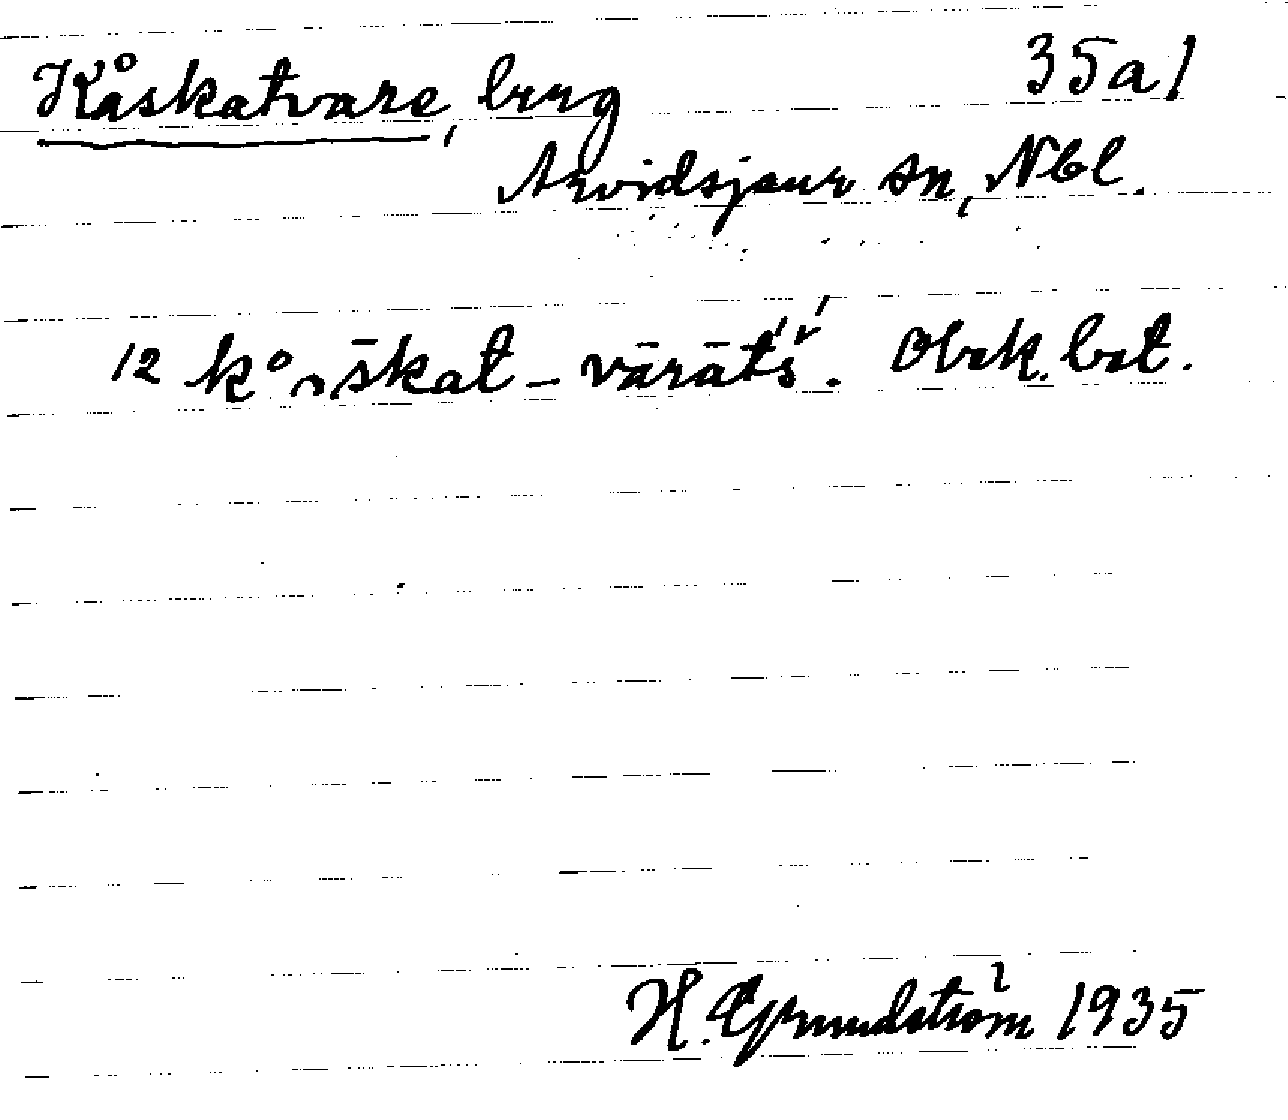 Kåskatvare, berg 35a1
Arvidsjaur sn, Nbl.
12 k°ɔ̄škat-vārāt́š́. Obek. bet.
H. Grundström 1935